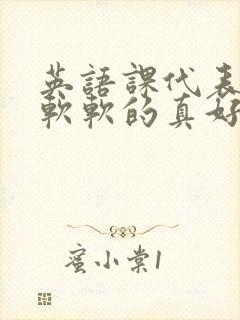 英語課代表
軟軟的真好
蜜小棠1